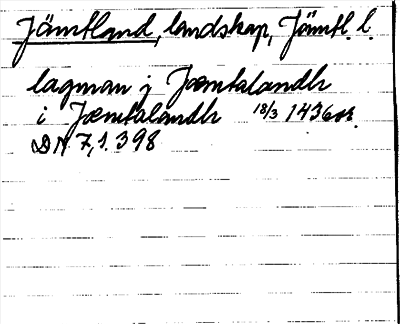 Jämtland, landskap, Jämtl. l.
lagman j Jæmtalandh
i Jæmtalandh 18/3 1436
DN 7, 1. 398